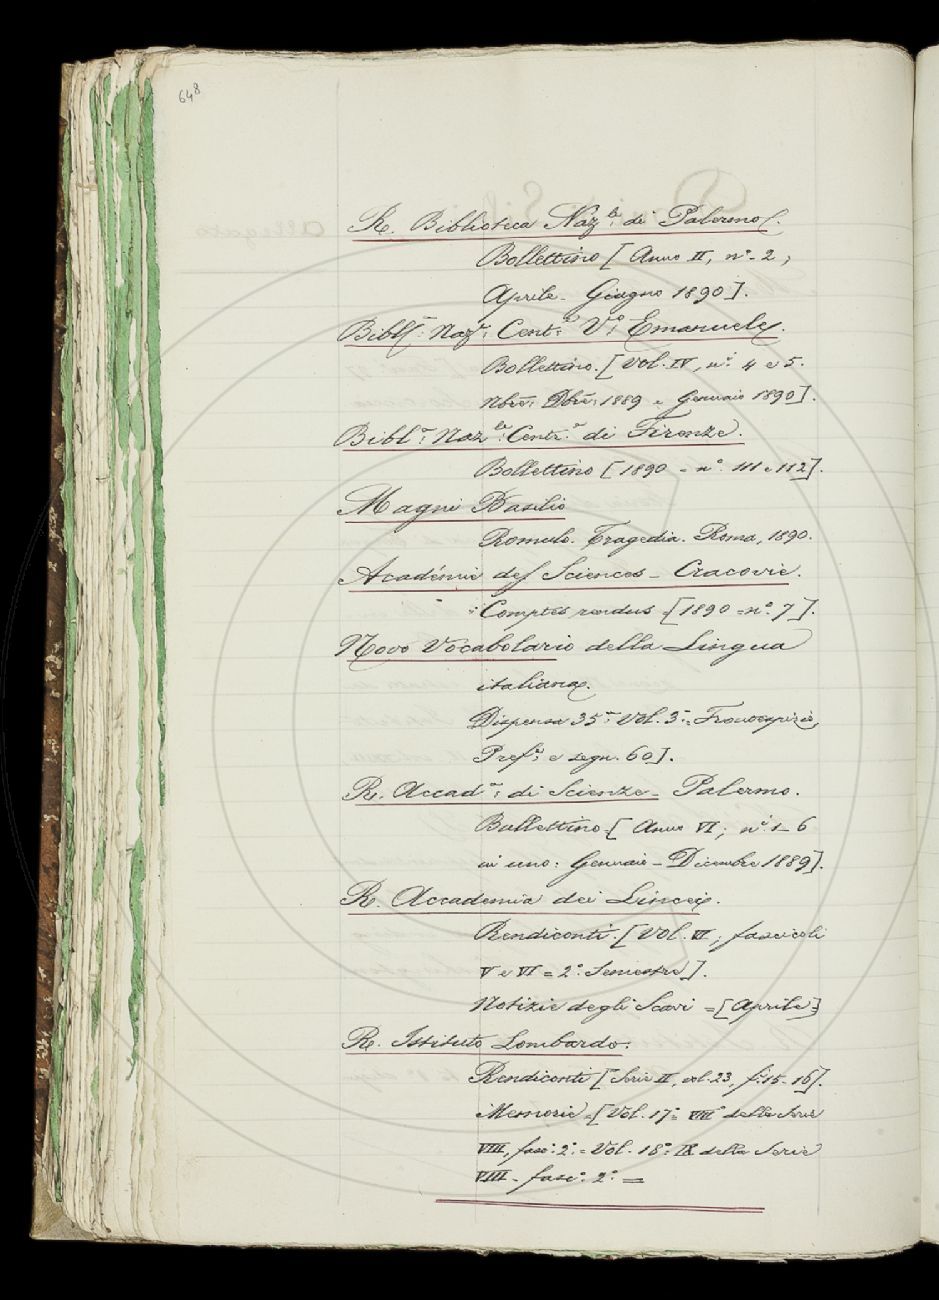 648
R. Biblioteca Naz.le di Palermo.
Bollettino [Anno II, n.o 2,
Aprile - Giugno 1890].
Bibl.a Naz.e Cent.e V.o Emanuele.
Bollettino. [Vol. IV, n.i 4 e 5.
Nbre: Dbre: 1889 e Gennaio 1890].
Bibl.a Naz.le Centr.e di Firenze.
Bollettino [1890 - n.o 111 e 112].
Magni Basilio
Romolo. Tragedia. Roma, 1890.
Académie des Sciences - Cracovie.
Comptes rendus = [1890 = n.o 7].
Novo Vocabolario della Lingua
italiana.
Dispensa 35.a Vol. 3.o = Frontespizio,
Pref.e e segn. 60].
R. Accad.a di Scienze - Palermo.
Bullettino = [Anno VI; n.i 1-6
in uno: Gennaio - Dicembre 1889].
R. Accademia dei Lincei.
Rendiconti. [Vol. VI, fascicoli
V e VI = 2.o Semestre].
Notizie degli Scavi = [Aprile]
R. Istituto Lombardo.
Rendiconti [Serie II, vol. 23, f.i 15-16].
Memorie = [Vol. 17.o = VIII della Serie
VIII, fasc. 2.o = Vol. 18.o IX della Serie
VIII - fasc. 2.o =